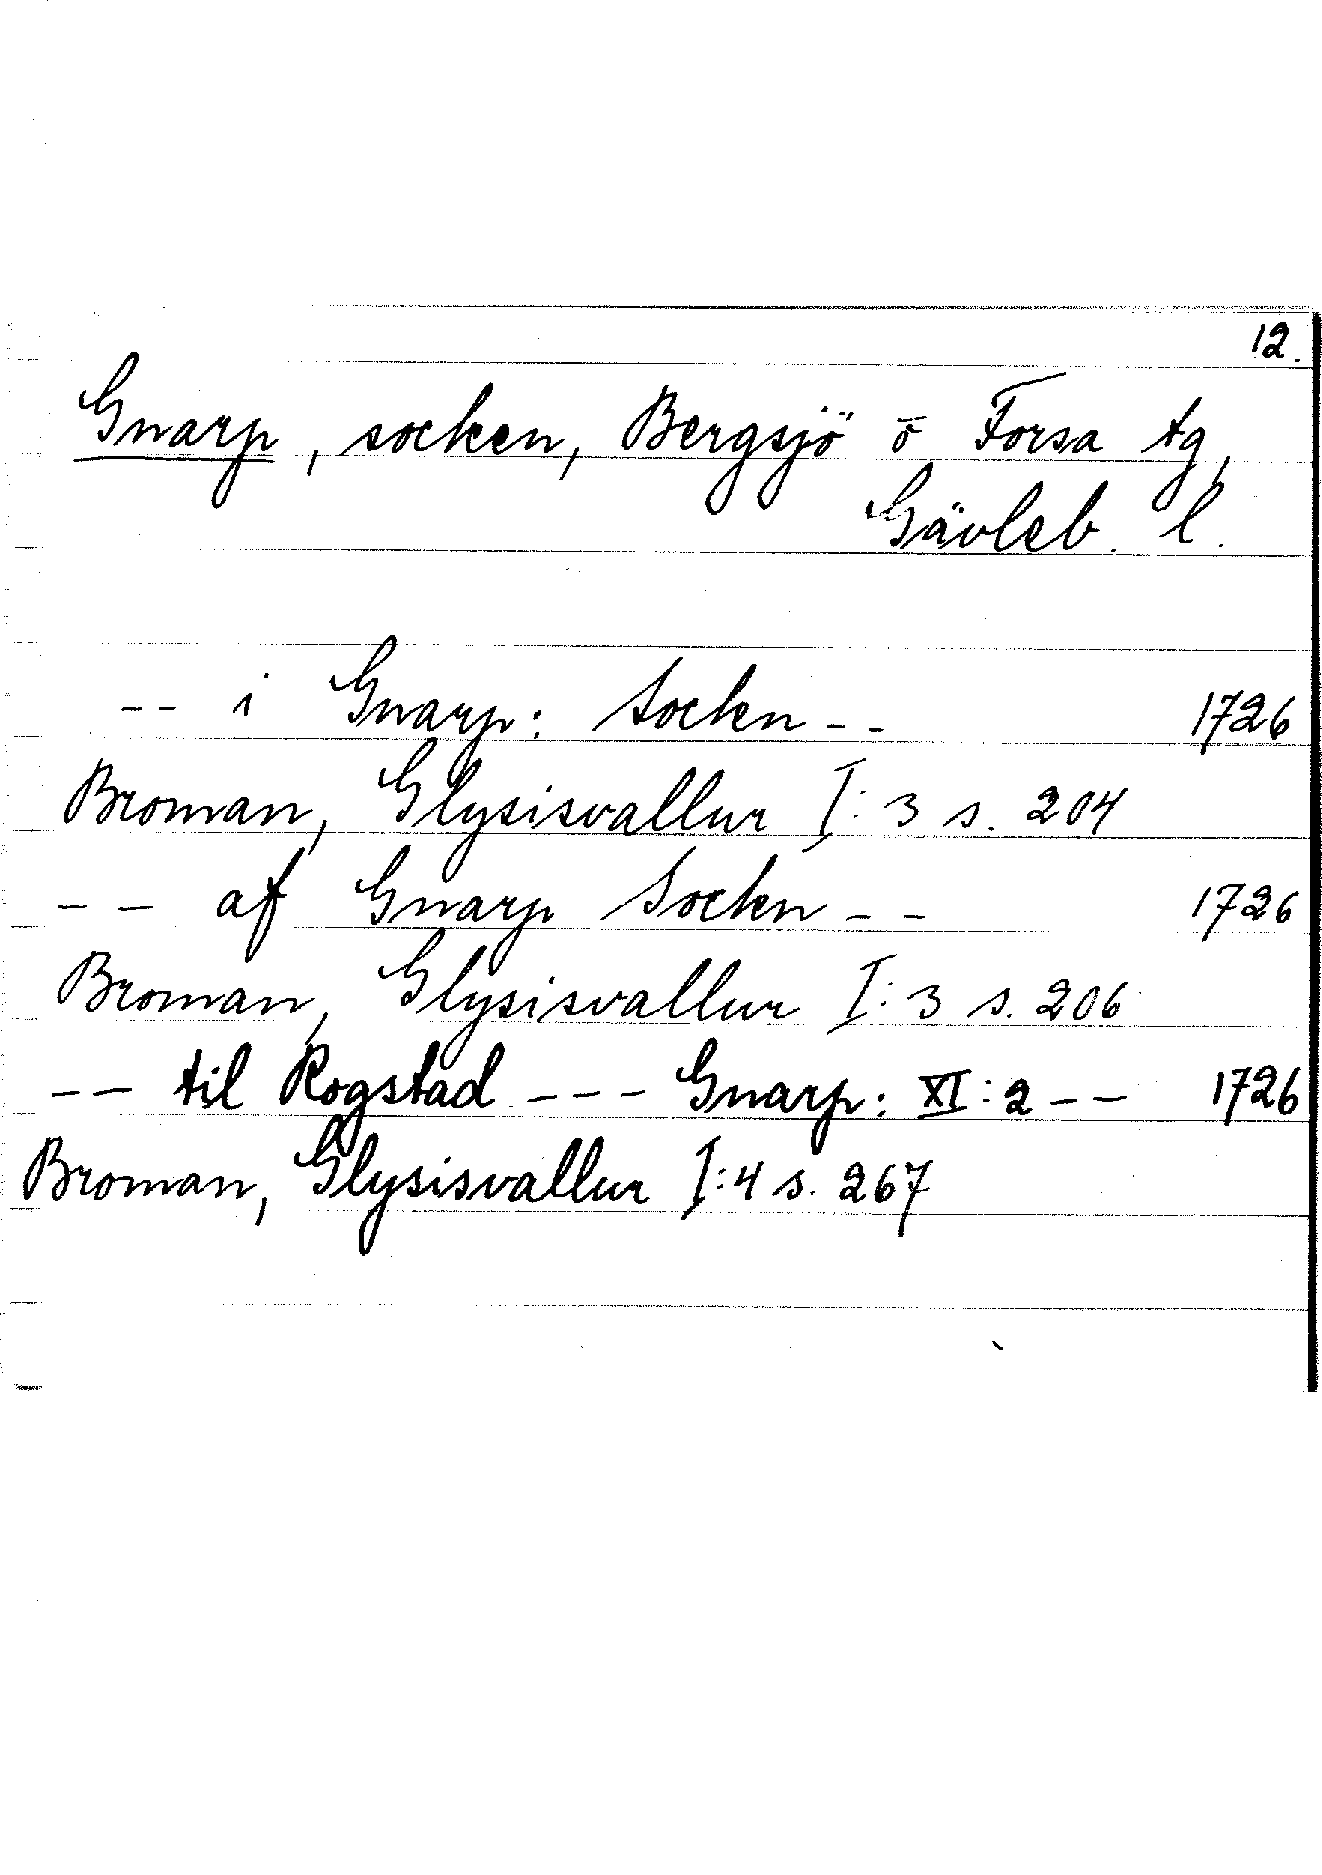 12.
Gnarp, socken, Bergsjö o Forsa tg,
Gävleb. l.
-- i Gnarp: Sockn -- 1726
Broman, Glysisvallur I:3 s. 204
-- af Gnarp Sockn -- 1726
Broman, Glysisvallur I:3 s. 206
-- til Rogstad --- Gnarp: XI:2 -- 1726
Broman, Glysisvallur I:4 s. 267